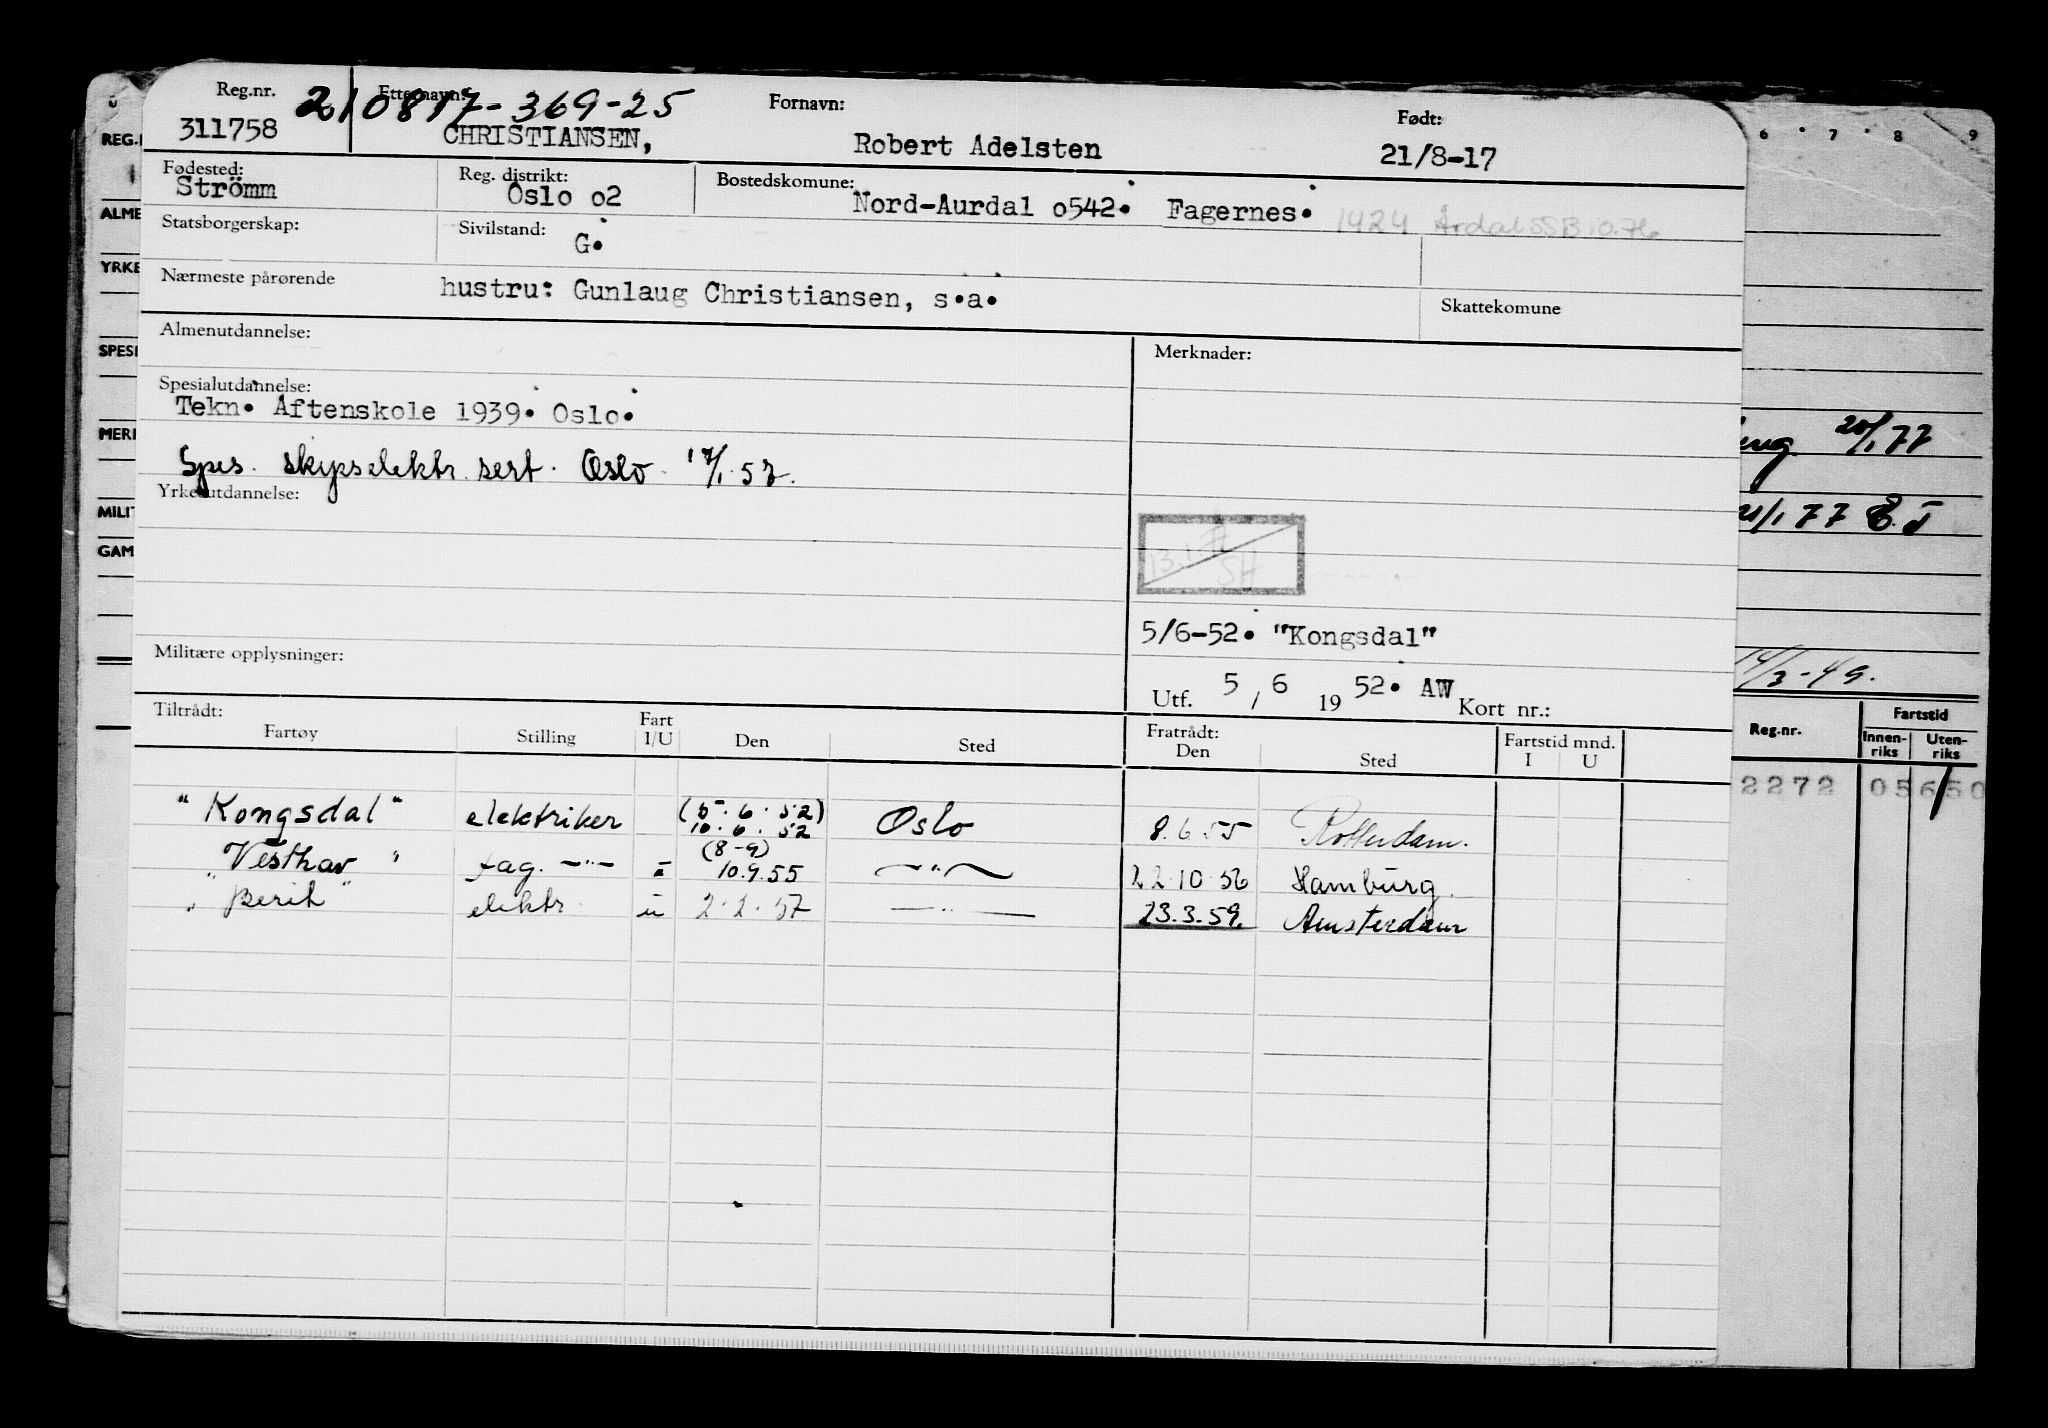 Reg.nr. Etternavn: Fornavn: Født:
210817-369-25
311758 CHRISTIANSEN, Robert Adelsten 21/8-17
Fødested: Reg. distrikt: Bostedskomune:
Strömm Oslo o2 Nord-Aurdal o542. Fagernes. 1424 Årdal SSB 10.76
Statsborgerskap: Sivilstand: G.
Nærmeste pårørende hustru: Gunlaug Christiansen, s.a. Skattekomune
Almenutdannelse: Merknader:
Spesialutdannelse:
Tekn. Aftenskole 1939. Oslo.
Spes. skipselektr. sert. Oslo 17/1-57.
Yrkesutdannelse:
5/6-52. "Kongsdal"
Militære opplysninger:
Utf. 5 / 6 19 52. AW Kort nr.:
Tiltrådt: Fratrådt:
Fartøy Stilling Fart I/U Den Sted Den Sted Fartstid mnd. I U
"Kongsdal" elektriker (5.6.52) 10.6.52 Oslo 8.6.55 Rotterdam.
"Vesthav" (8-9) 10.9.55 —"— 22.10.56 Hamburg.
"Berit" elektr. u 2.2.57 —"— 23.3.59. Amsterdam
REG.
ALME
YRKE
SPESI
MERK
MILIT
GAM
6 7 8 9
20/1 77
21/1 77
14/3-49.
Reg.nr. Fartstid
Innen-riks Uten-riks
2272 05650